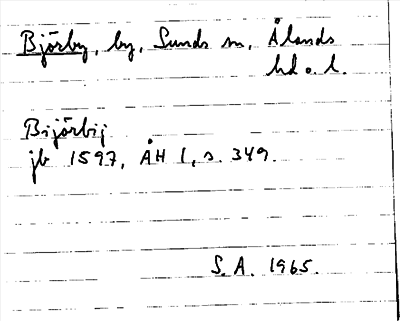 Björby, by, Sunds sn, Ålands
hd o. l.
Bijörbij
jb 1597, ÅH 1, s. 349.
S. A. 1965.